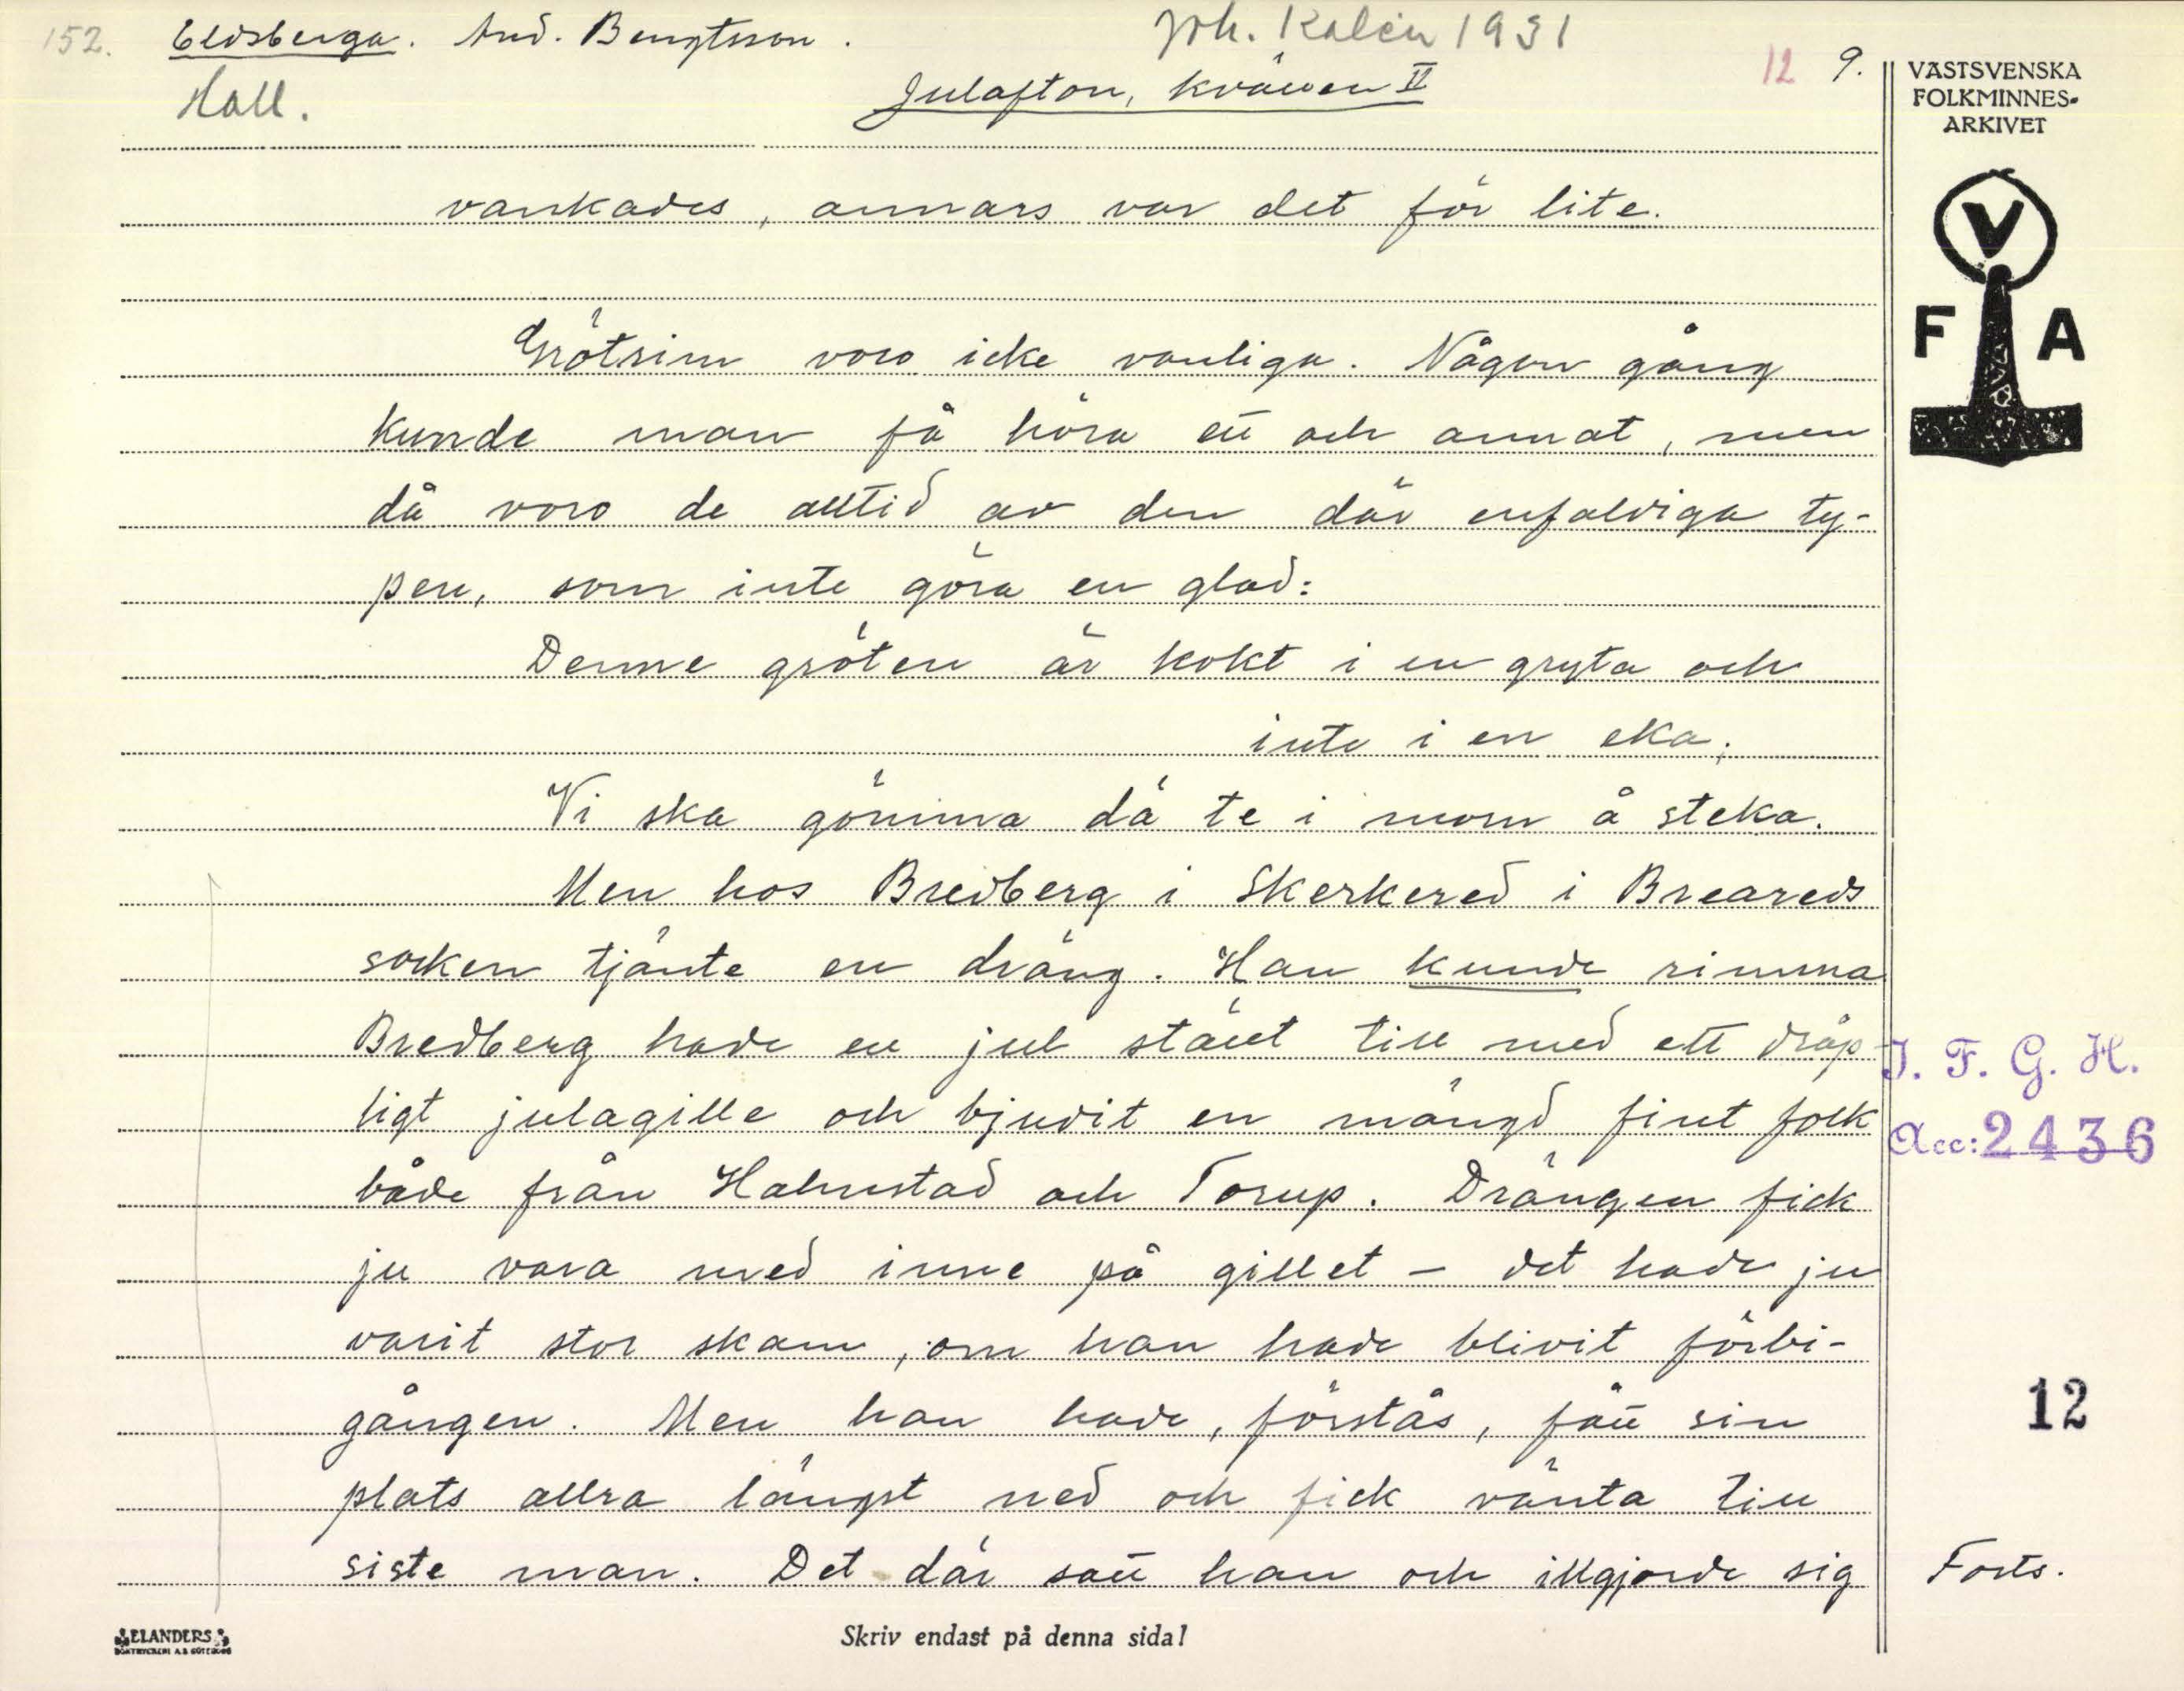 152. Eldsberga. And. Bengtsson. Joh. Kalén 1931
12 9.
Hall. Julafton, kvällen II
VÄSTSVENSKA
FOLKMINNES-
ARKIVET
V
F A
vankades, annars var det för lite.
Grötrim voro icke vanliga. Någon gång
kunde man få höra ett och annat, men
då voro de alltid av den där enfaldiga ty-
pen, som inte göra en glad:
Denne gröten är kokt i en gryta och
inte i en eka,
Vi ska gömma dä te i morn å steka.
Men hos Bredberg i Skerkered i Breareds
socken tjänte en dräng. Han kunde rimma
Bredberg hade en jul ställt till med ett dråp-
ligt julagille och bjudit en mängd fint folk
både från Halmstad och Torup. Drängen fick
ju vara med inne på gillet - det hade ju
varit stor skam, om han hade blivit förbi-
gången. Men han hade, förstås, fått sin
plats allra längst ned och fick vänta till
siste man. Det där satt han och illgjorde sig
I. F. G. H.
Acc: 2436
12
Forts.
ELANDERS
BOKTRYCKERI A.B. GÖTEBORG
Skriv endast på denna sida!